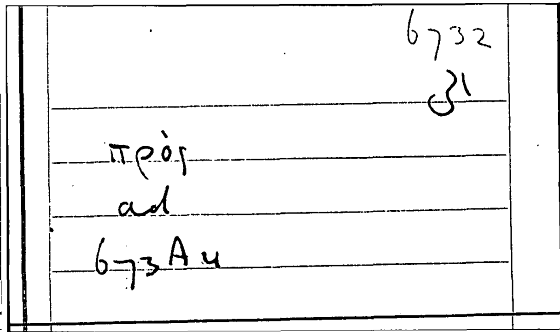 6732
31
πρός
ad
673A4